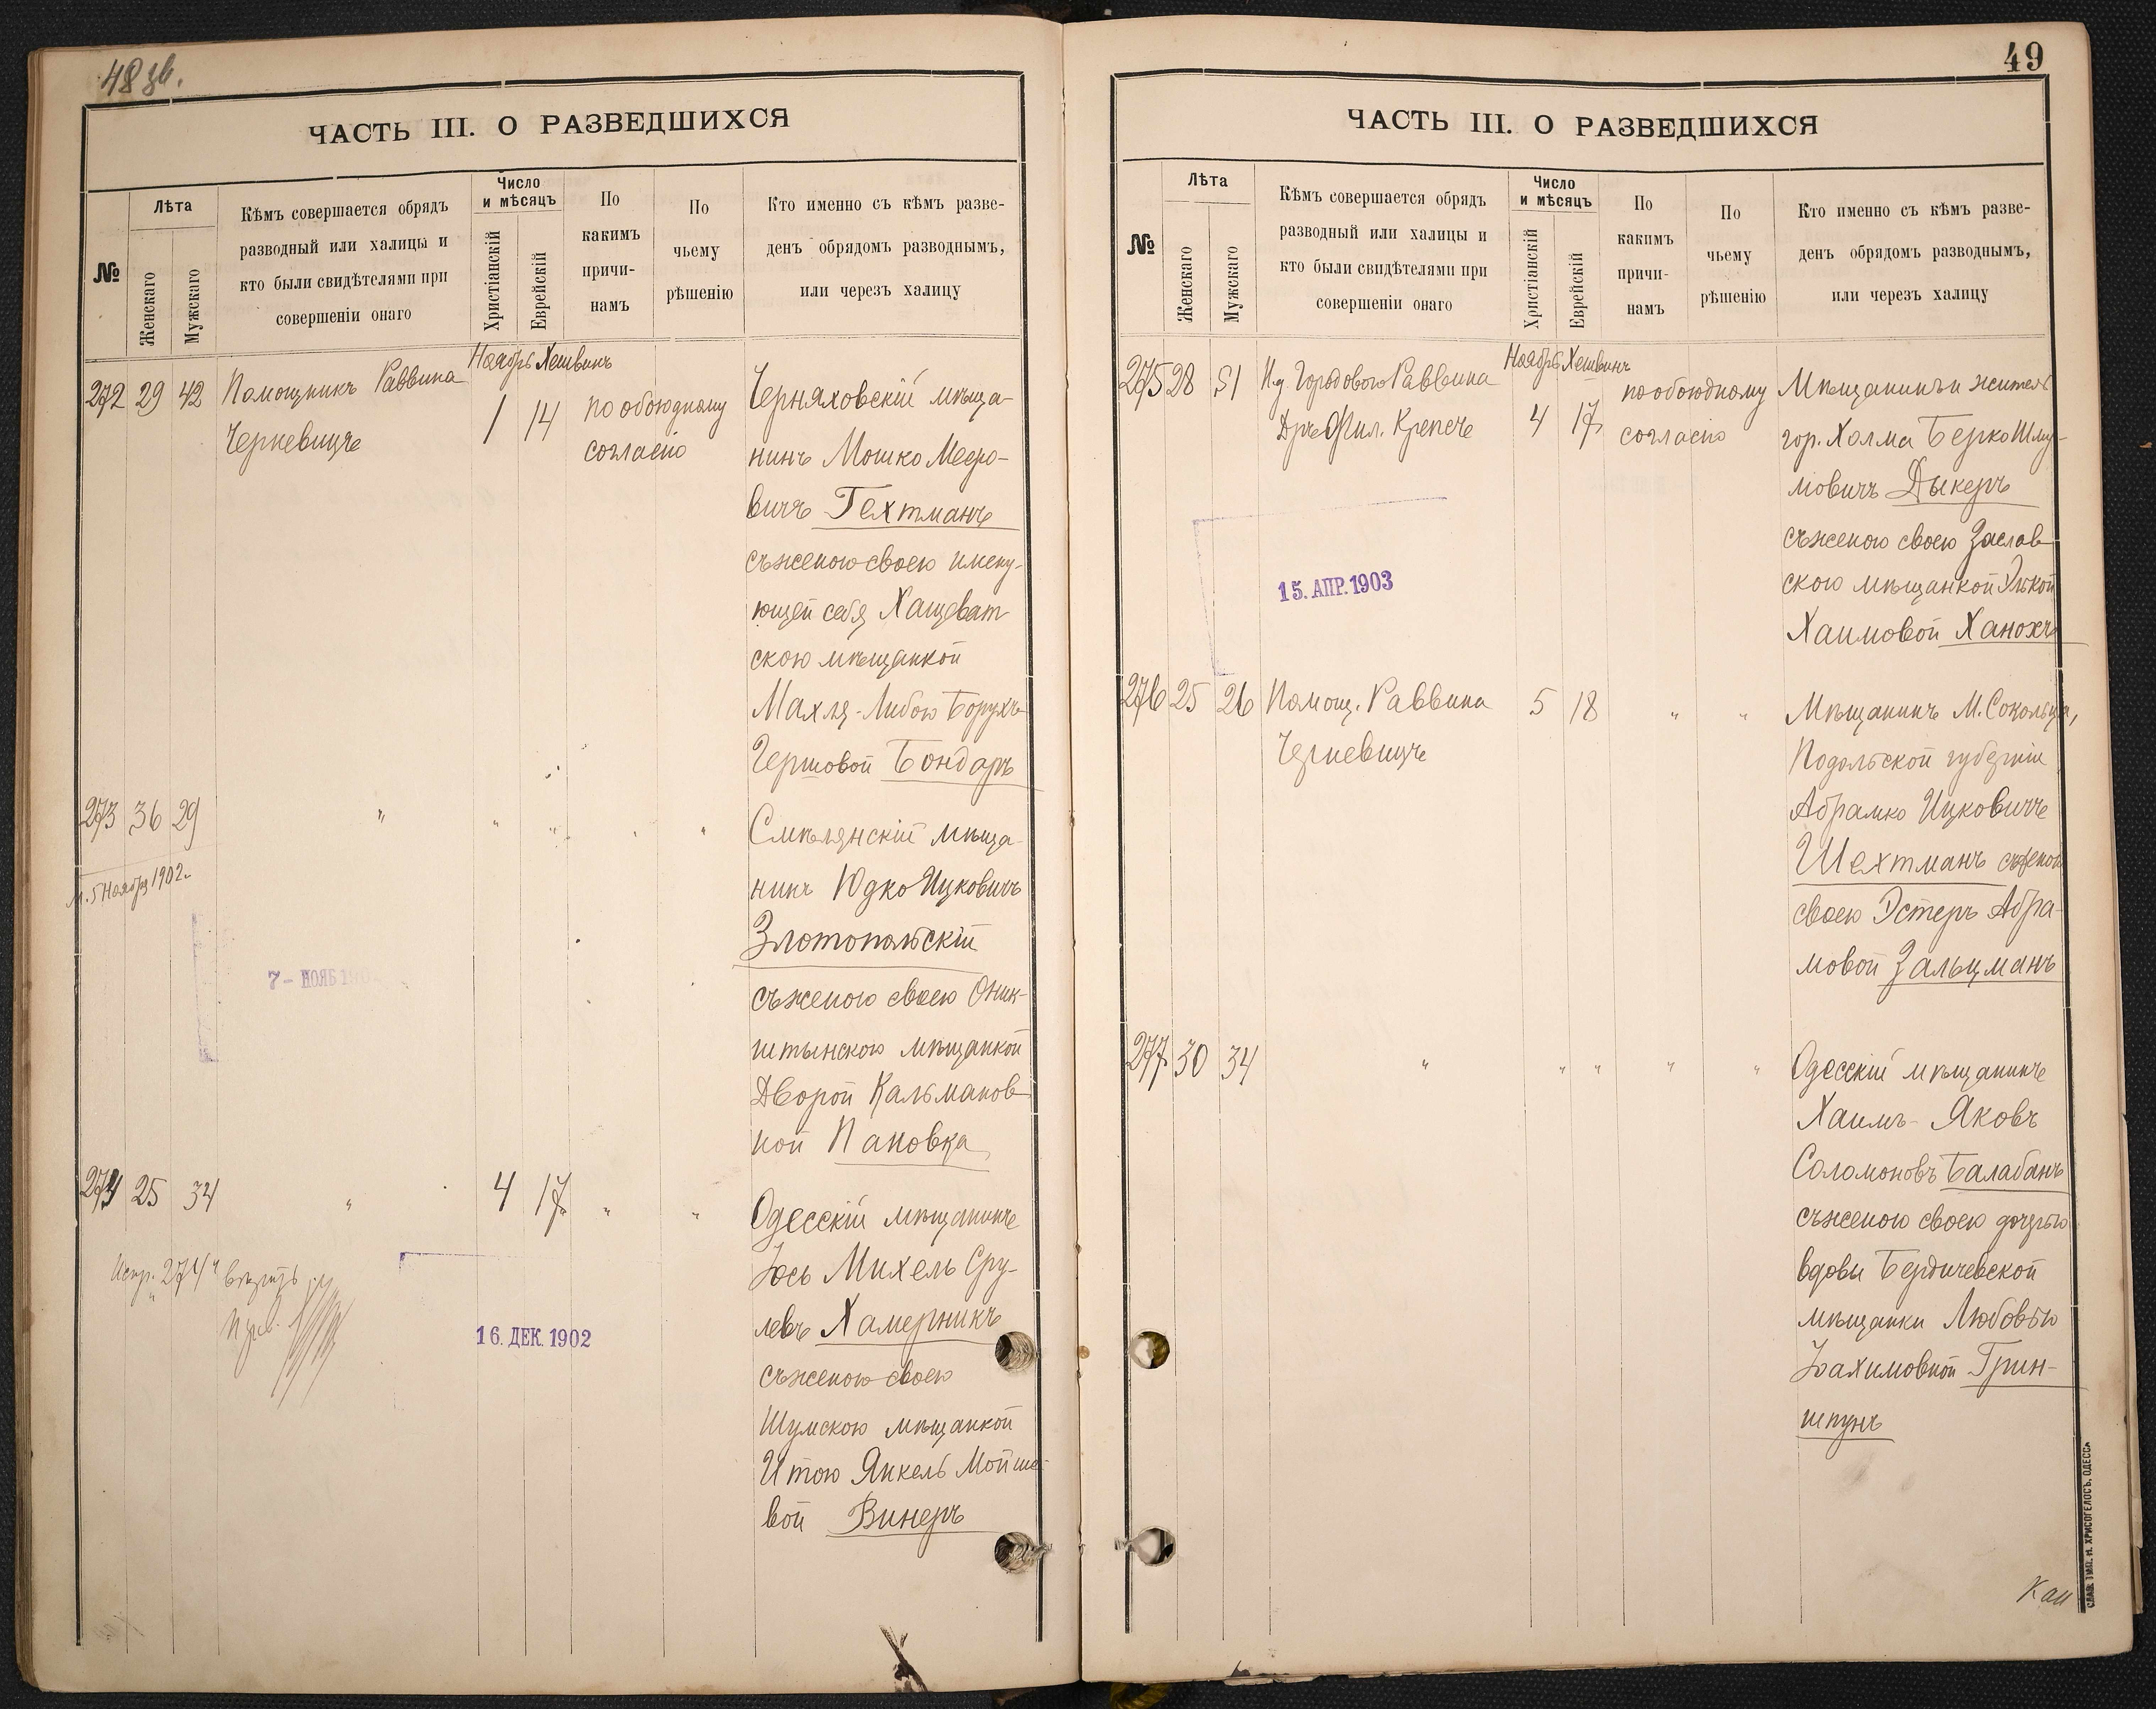 48 зв.
ЧАСТЬ III. О РАЗВЕДШИХСЯ
№
Лѣта
Женскаго
Мужскаго
Кѣмъ совершается обрядъ
разводный или халицы и
кто были свидѣтелями при
совершеніи онаго
Число
и мѣсяцъ
Христіанскій
Еврейскій
По
какимъ
причи-
намъ
По
чьему
рѣшенію
Кто именно съ кѣмъ разве-
денъ обрядомъ разводнымъ,
или черезъ халицу
Ноябрь Хешвинъ
272 29 42
Помощникъ Раввина
Черкевицъ
1 14
по обоюдному
согласію
Черняховскій мѣща-
нинъ Мошко Меэро-
вичъ Гехтманъ
съ женою своею имену-
ющей себя Хащеват-
скою мѣщанкой
Махля-Либою Борухъ
Гершовой Бондаръ
273 36 29 " " " " "
5 Ноября 1902
7- НОЯБ 190
Смѣлянскій мѣща-
нинъ Юдко Ицковичъ
Златопольскій
съ женою своею Оник-
штынскою мѣщанкой
Дворой Кальманов-
ной Пановка
274 25 34 " 4 17 " "
Испр. 274
16. ДЕК. 1902
Одесскій мѣщанинъ
Іось Михель Сру-
левъ Хамерникъ
съ женою своею
Шумскою мѣщанкой
Итою Янкель Мойше-
вой Винеръ
49
ЧАСТЬ III. О РАЗВЕДШИХСЯ
№
Лѣта
Женскаго
Мужскаго
Кѣмъ совершается обрядъ
разводный или халицы и
кто были свидѣтелями при
совершеніи онаго
Число
и мѣсяцъ
Христіанскій
Еврейскій
По
какимъ
причи-
намъ
По
чьему
рѣшенію
Кто именно съ кѣмъ разве-
денъ обрядомъ разводнымъ,
или черезъ халицу
Ноябрь Хешвинъ
275 28 51
И.д. Городового Раввина
Дръ Фил. Крепсъ
4 17
по обоюдному
согласію
15. АПР. 1903
Мѣщанинъ и житель
гор. Холма Берко Шлу-
мовичъ Дыкеръ
съ женою своею Заслав-
скою мѣщанкой Элькой
Хаимовой Ханохъ
276 25 26
Помощ. Раввина
Черкевицъ
5 18 " "
Мѣщанинъ М. Сокольца,
Подольской губерніи
Абрамко Ицковичъ
Шехтманъ съ женою
своею Эстеръ Абра-
мовой Зальцманъ
277 30 34 " " " " "
Одесскій мѣщанинъ
Хаимъ-Яковъ
Соломоновъ Балабанъ
съ женою своею дочерью
вдовы Бердичевской
мѣщанки Любовью
Іоахимовной Грин-
шпунъ
Кан
СЛАВ. ТИП. Н. ХРИСОГЕЛОСЪ, ОДЕССА